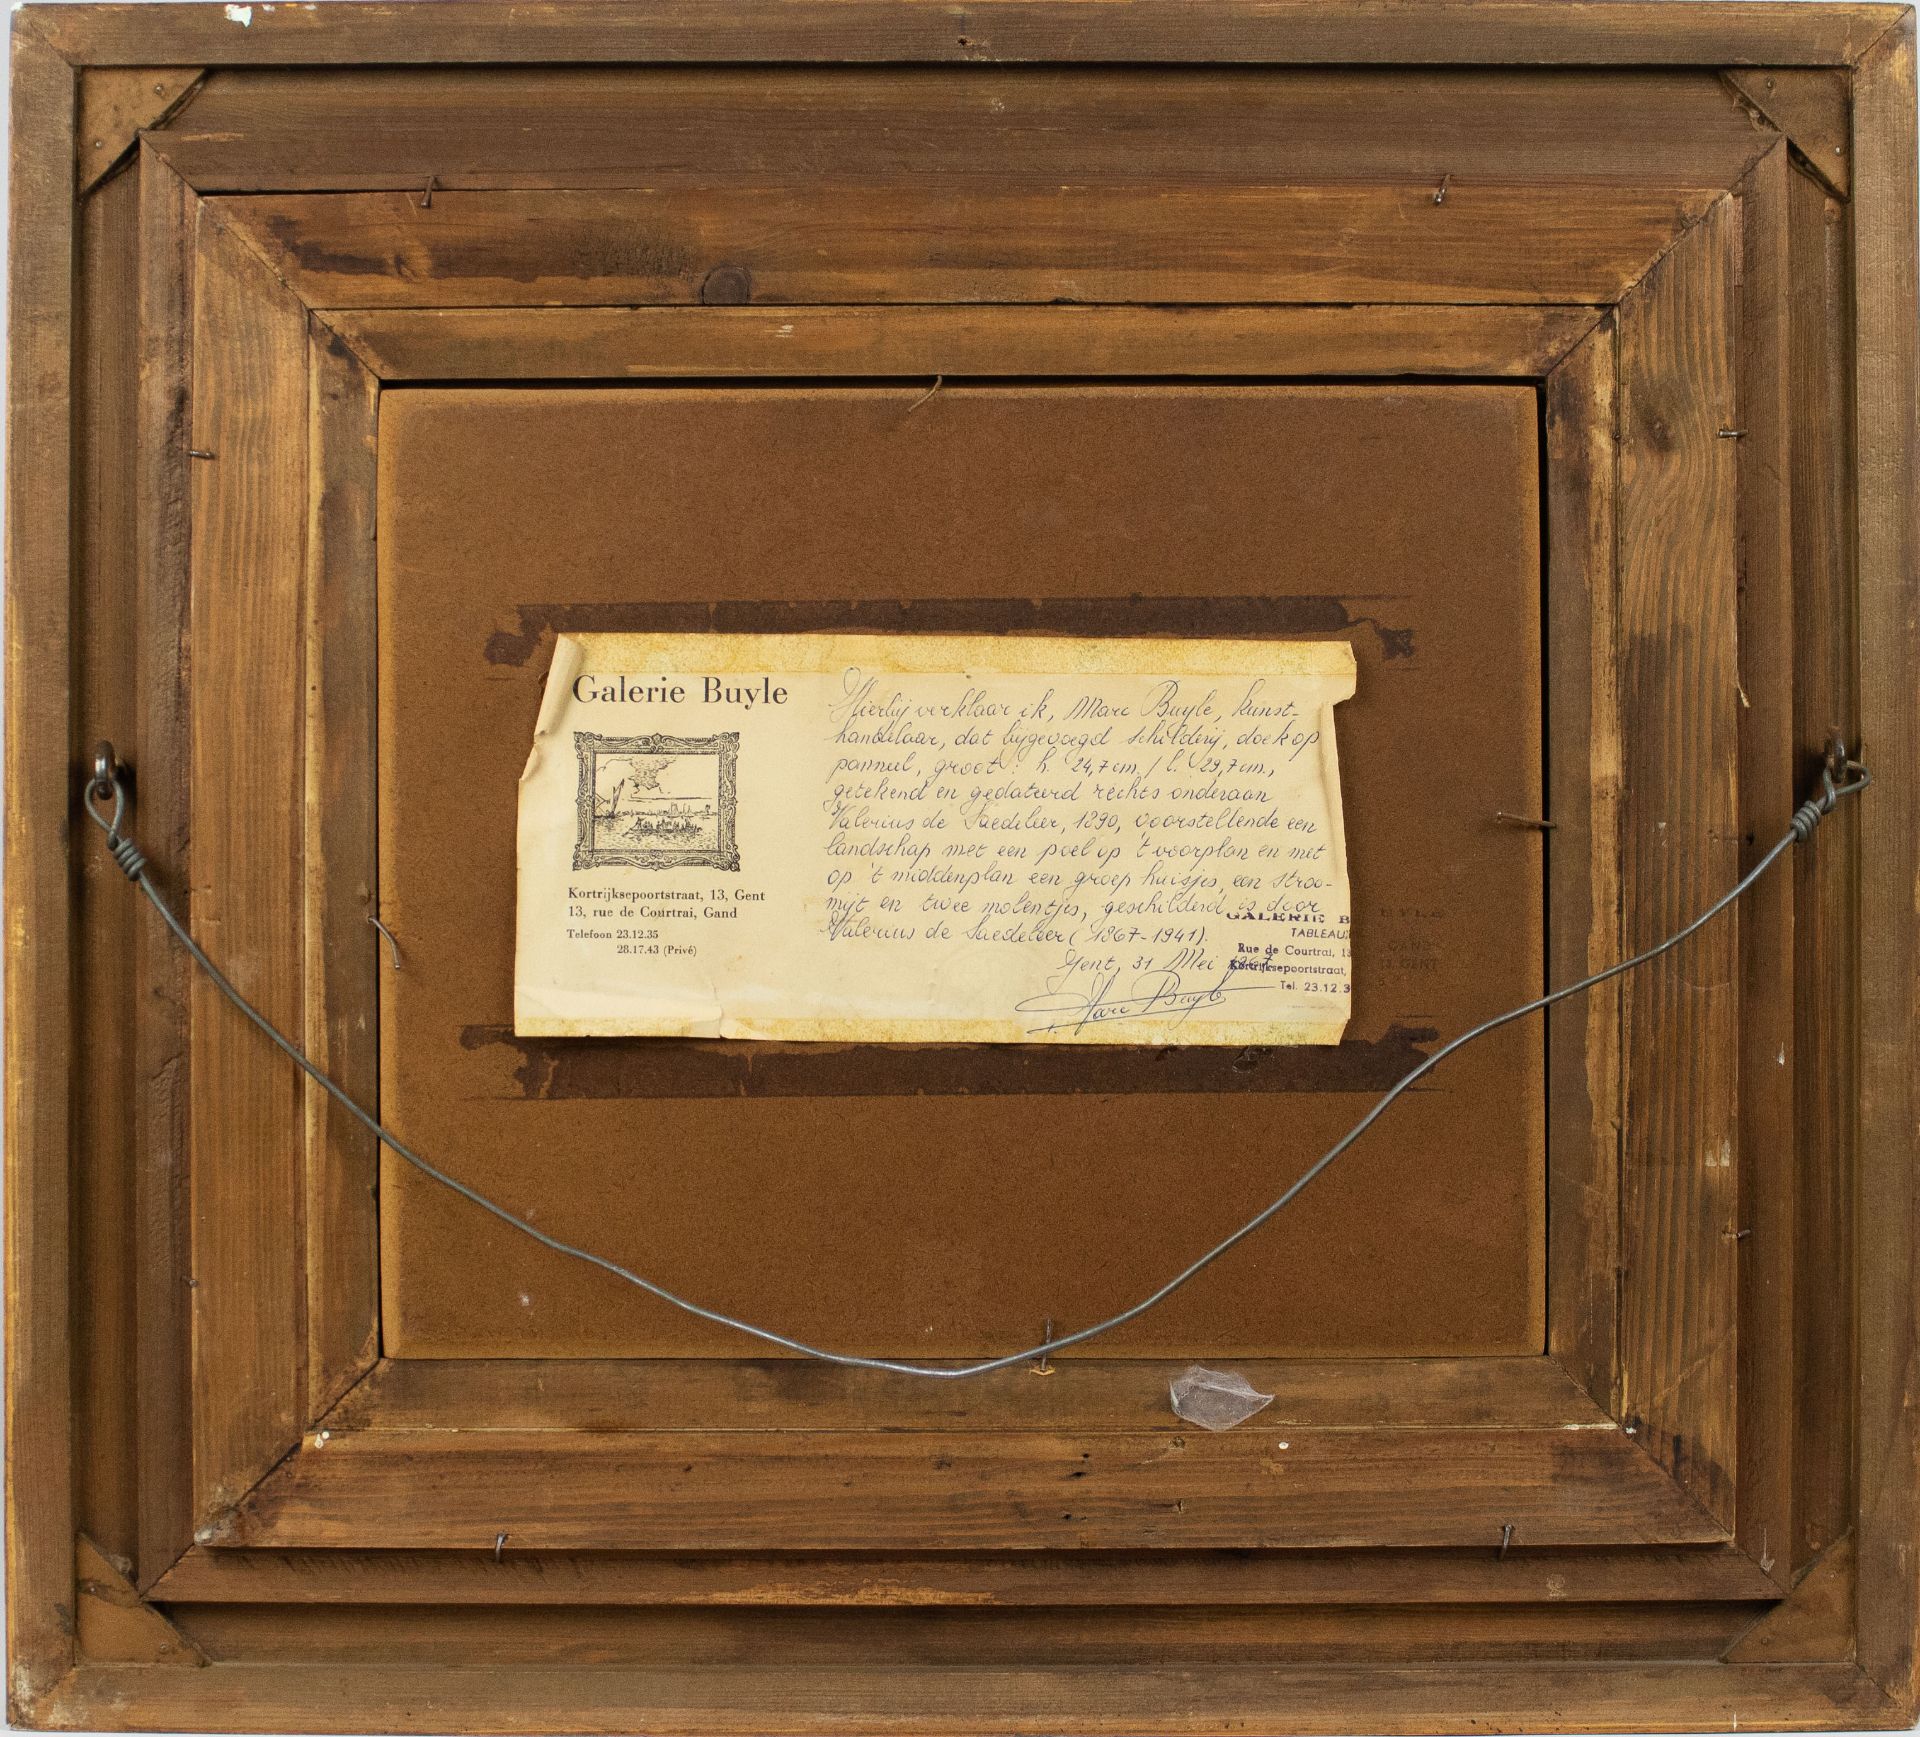 Galerie Buyle
Kortrijksepoortstraat, 13, Gent
13, rue de Courtrai, Gand
Telefoon 23.12.35
28.17.43 (Privé)
Hierbij verklaar ik, Marc Buyle, kunst-
handelaar, dat bijgevoegd schilderij, doek op
panneel, groot: h. 24,7 cm. / l. 29,7 cm.,
getekend en gedateerd rechts onderaan
Valerius de Saedeleer, 1890, voorstellende een
landschap met een poel op 't voorplan en met
op 't middenplan een groep huisjes, een stroo-
mijt en twee molentjes, geschilderd is door
Valerius de Saedeleer (1867-1941).
Gent, 31 Mei 1967
Marc Buyle
GALERIE B
TABLEAUX
Rue de Courtrai, 13
Kortrijksepoortstraat,
Tel. 23.12.3
GAND
13 GENT